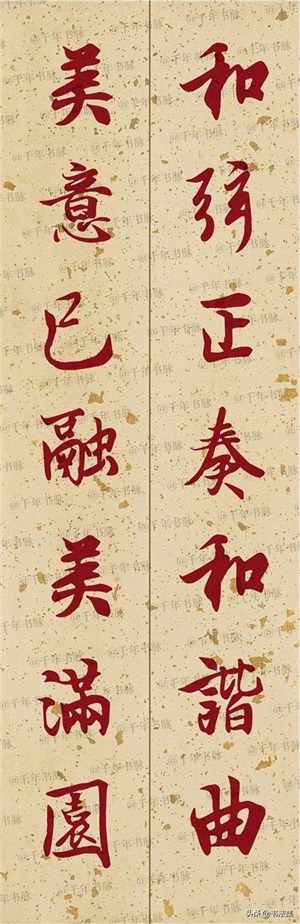 和弦正奏和諧曲
美意已融美滿園
@千年书脉
头条@书法荟